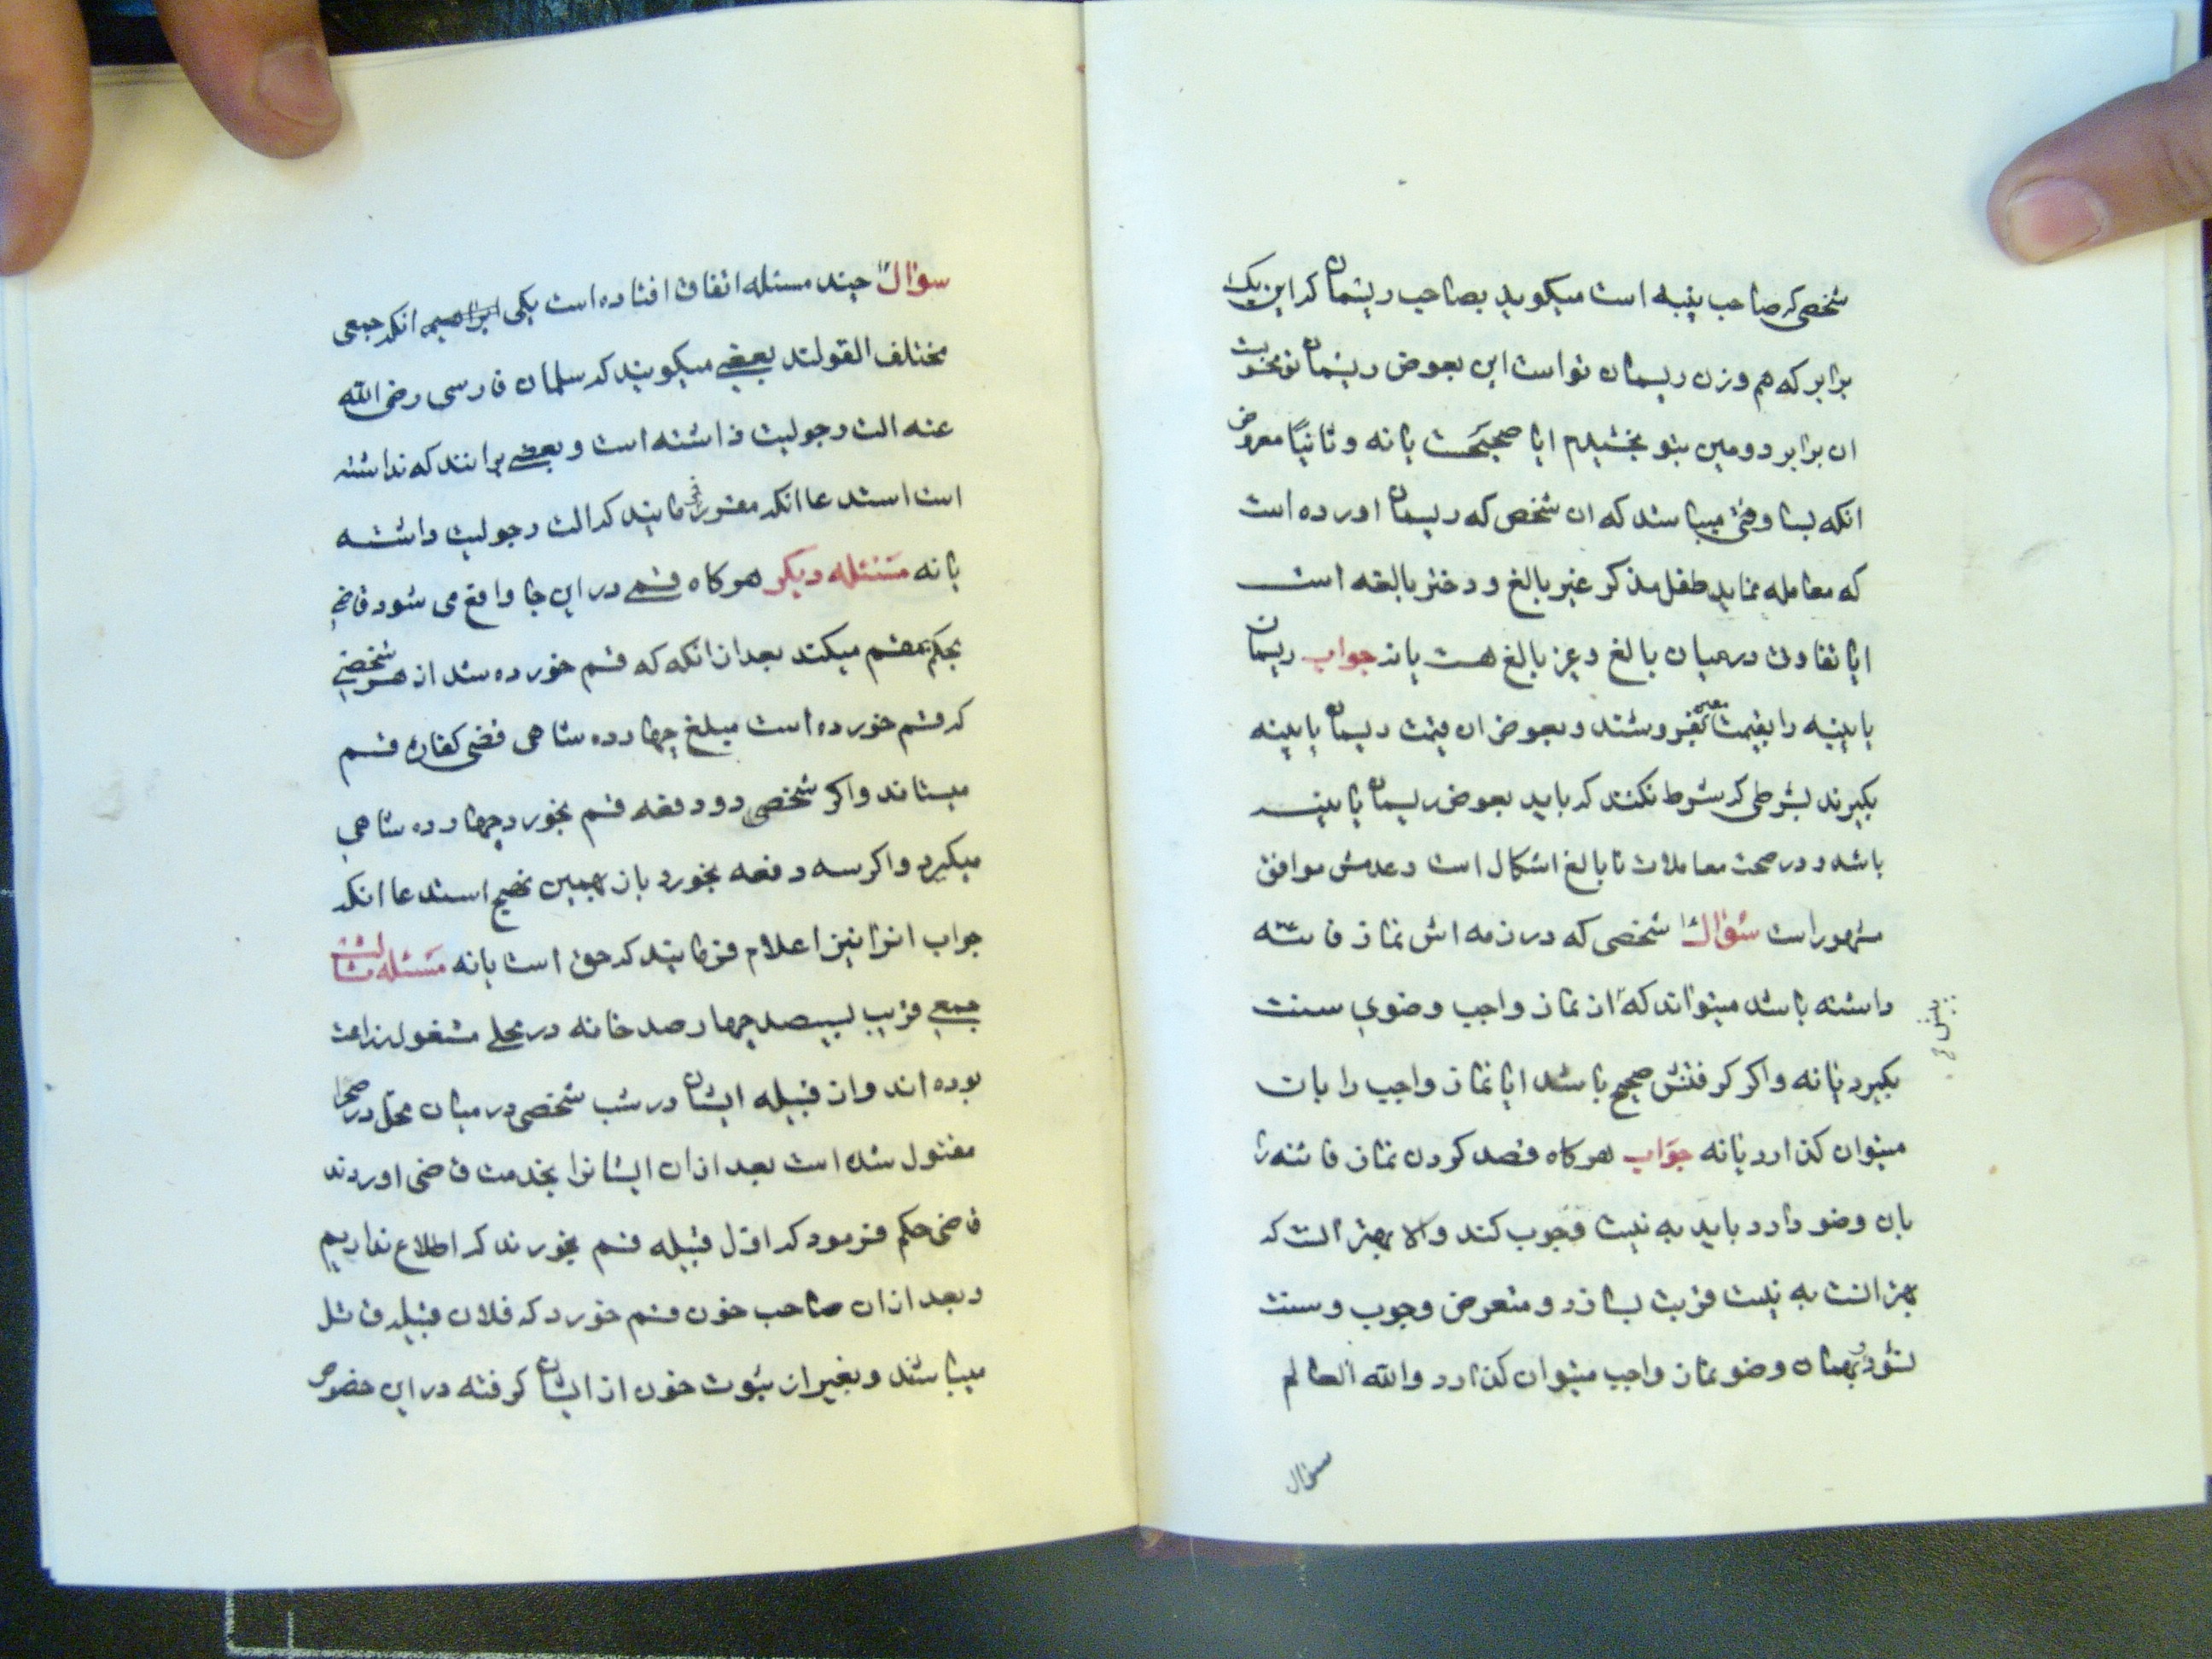 شخصی که صاحب پنبه است میکوید بصاحب ریسمان که این یک
برابر که هم وزن ریسمان تو است این بعوض ریسمان تو
ان برابر دومین بتو بخشیدم ایا صحیحست یا نه و ثانیًا معروض
انکه بسا وقتی میباشد که ان شخص که ریسمان اورده است
که معامله نماید طفل مذکر غیر بالغ و دختر بالغه است
ایا تفاوت درمیان بالغ و غیر بالغ هست یا نه جواب ریسمان
یا پنبه را بقیمت معین بفروشند و بعوض ان قیمت ریسمان یا پنبه
بکیرند بشرطی که شرط نکنند که باید بعوض ریسمان یا پنبه
باشد و در صحت معاملات نا بالغ اشکال است و عدمش موافق
مشهور است سؤال شخصی که در ذمه اش نماز فائته
داشته باشد میتواند که از نماز واجب وضوی سنت
بکیرد یا نه و اکر کرفتنش صحیح باشد ایا نماز واجب را بان
میتوان کذارد یا نه جواب هرکاه قصد کردن نماز فائته را
بان وضو دارد باید به نیت وجوب کند والا بهتر انست که
بهتر انست به نیت قربت بسازد و متعرض وجوب و سنت
نشود و بهمان وضو نماز واجب میتوان کذارد والله العالم
سؤال
سؤال چند مسئله اتفاق افتاده است یکی انکه جمعی
مختلف القولند بعضی میکویند که سلمان فارسی رضی الله
عنه الت رجولیت داشته است و بعضی برانند که نداشته
است استدعا انکه مقرر فرمایند که الت رجولیت داشته
یا نه مسئله دیکر هرکاه قسمی در این جا واقع می شود قاضی
بحکم قسم میکند بعد از انکه که قسم خورده شد از هر شخصی
که قسم خورده است مبلغ چهارده شاهی قضی کفاره قسم
میستاند و اکر شخصی دو دفعه قسم بخورد چهارده شاهی
میکیرد و اکر سه دفعه بخورد باز بهمین نهج استدعا انکه
جواب انرا نیز اعلام فرمایند که حق است یا نه مسئله ثالثه
جمعی قریب بسیصد چهارصد خانه در محلی مشغول زراعت
بوده اند و از قبیله ایشان در شب شخصی در میان محل در صحرا
مقتول شده است بعد از ان ایشانرا بخدمت قاضی اوردند
قاضی حکم فرمود که اول قبیله قسم بخورند که اطلاع نداریم
و بعد از ان صاحب خون قسم خورد که فلان قبیله قاتل
میباشند و بغیر از ثبوت خون از ایشان کرفته در این خصوص